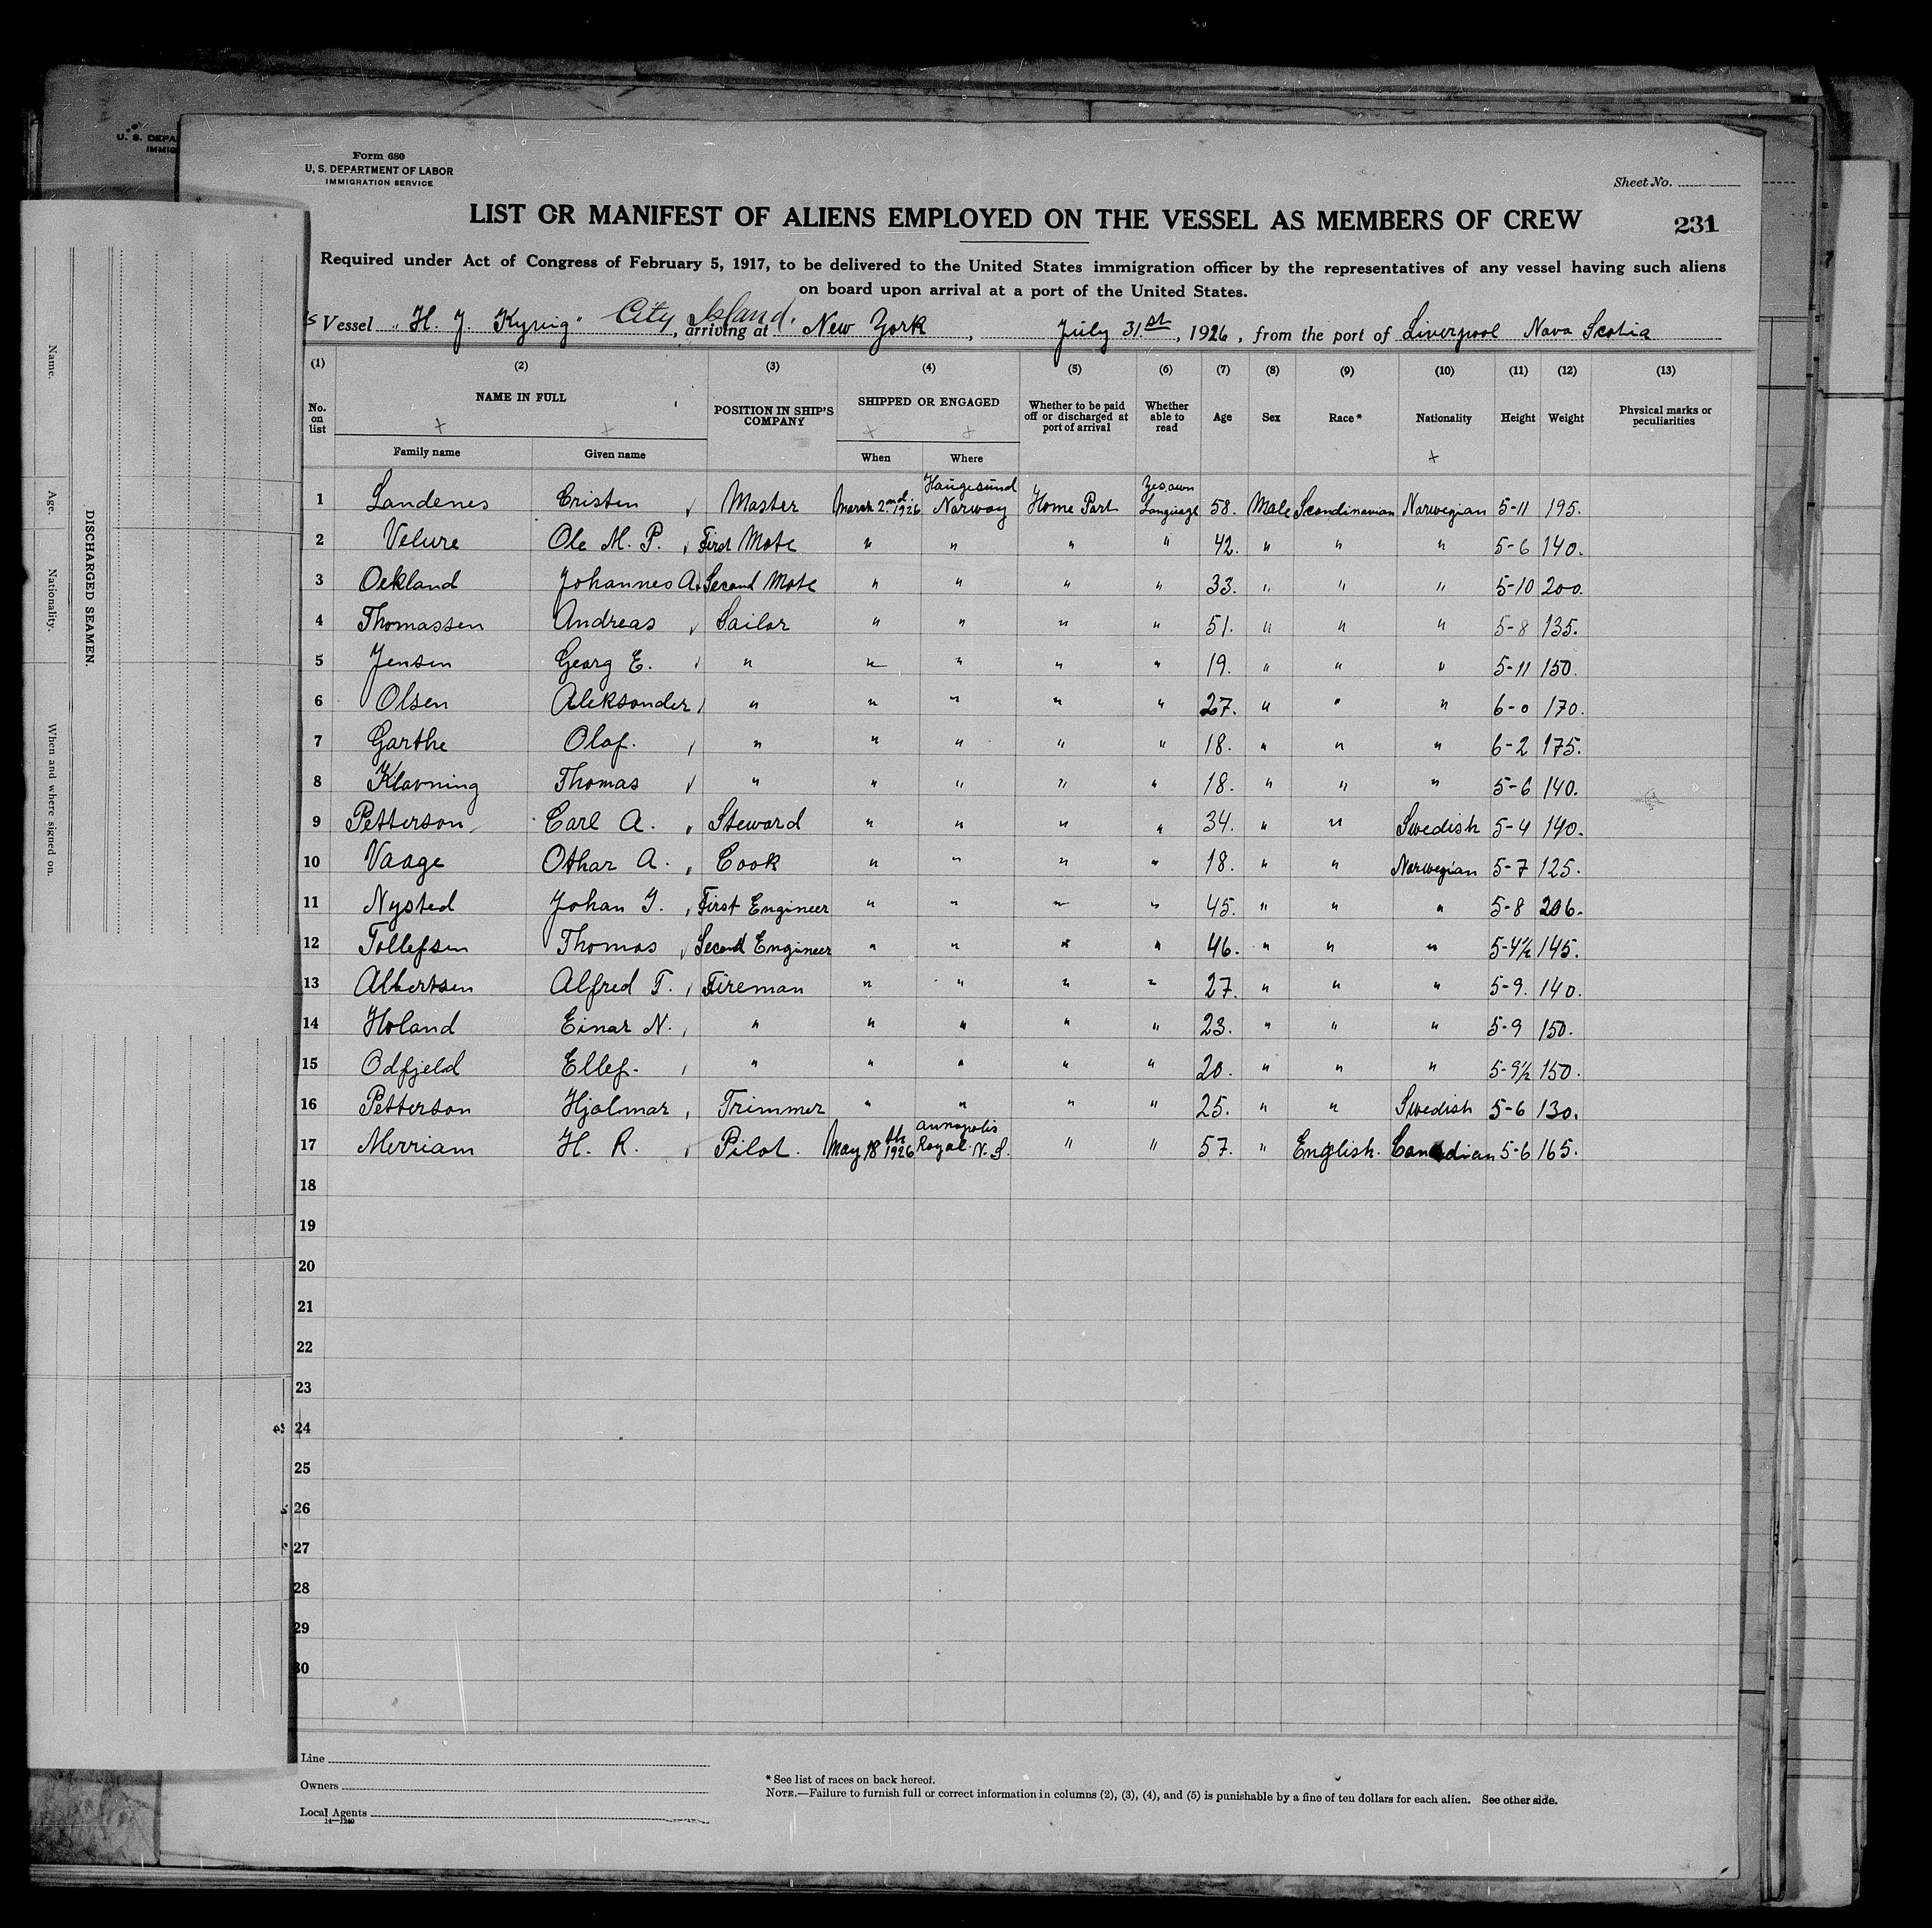 U. S. DEPA
IMMIG
Form 680
U. S. DEPARTMENT OF LABOR
IMMIGRATION SERVICE
Sheet No.
LIST OR MANIFEST OF ALIENS EMPLOYED ON THE VESSEL AS MEMBERS OF CREW
231
Required under Act of Congress of February 5, 1917, to be delivered to the United States immigration officer by the representatives of any vessel having such aliens
on board upon arrival at a port of the United States.
City Island.
Vessel "H. J. Kyvig", arriving at New York, July 31st, 1926, from the port of Liverpool Nova Scotia
(1) (2) (3) (4) (5) (6) (7) (8) (9) (10) (11) (12) (13)
No. on list NAME IN FULL POSITION IN SHIP'S COMPANY SHIPPED OR ENGAGED Whether to be paid off or discharged at port of arrival Whether able to read Age Sex Race* Nationality Height Weight Physical marks or peculiarities
Family name Given name When Where
1 Landenes Cristen Master March 2nd 1926 Haugesund Norway Home Port Yes, own Language 58. Male Scandinavian Norwegian 5-11 195.
2 Velure Ole M. P. First Mate " " " " 42. " " " 5-6 140.
3 Oekland Johannes A. Second Mate " " " " 33. " " " 5-10 200.
4 Thomassen Andreas Sailor " " " " 51. " " " 5-8 135.
5 Jensen Georg E. " " " " " 19. " " " 5-11 150.
6 Olsen Aleksander " " " " " 27. " " " 6-0 170.
7 Garthe Olaf. " " " " " 18. " " " 6-2 175.
8 Klavning Thomas " " " " " 18. " " " 5-6 140.
9 Petterson Carl A. Steward " " " " 34. " " Swedish 5-4 140.
10 Vaage Othar A. Cook " " " " 18. " " Norwegian 5-7 125.
11 Nysted Johan J. First Engineer " " " " 45. " " " 5-8 206.
12 Tollefsen Thomas Second Engineer " " " " 46. " " " 5-4½ 145.
13 Albertsen Alfred T. Fireman " " " " 27. " " " 5-9. 140.
14 Holand Einar N. " " " " " 23. " " " 5-9 150.
15 Odfjeld Ellef. " " " " " 20. " " " 5-9½ 150.
16 Petterson Hjalmar Trimmer " " " " 25. " " Swedish 5-6 130.
17 Merriam H. R. Pilot. May 18th 1926 Annapolis Royal. N. S. " " 57. " English. Canadian 5-6 165.
18
19
20
21
22
23
24
25
26
27
28
29
30
Line
Owners
Local Agents
14—1240
* See list of races on back hereof.
NOTE.—Failure to furnish full or correct information in columns (2), (3), (4), and (5) is punishable by a fine of ten dollars for each alien. See other side.
DISCHARGED SEAMEN.
Name. Age. Nationality. When and where signed on.